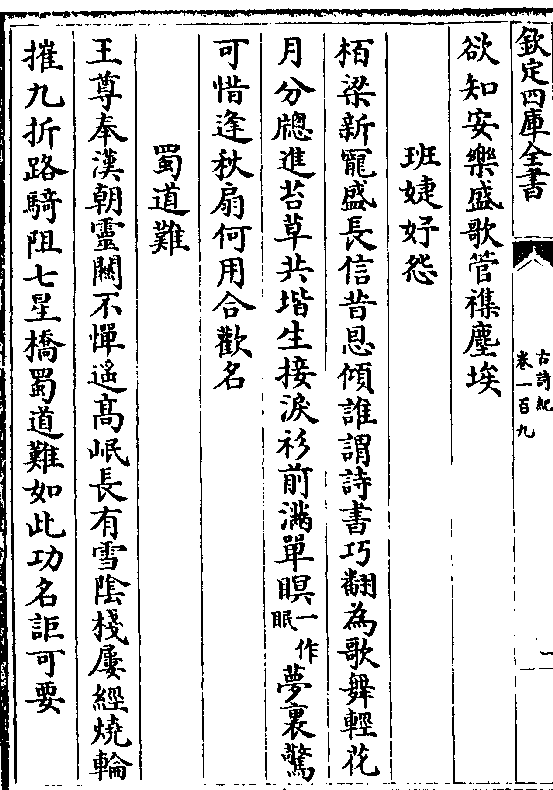 欽定四庫全書
古詩紀
卷一百九
欲知安樂盛歌管雜塵埃
班婕妤怨
栢梁新寵盛長信昔恩傾誰謂詩書巧翻為歌舞輕花
月分牕進苔草共堦生接淚衫前滿單瞑一作眠夢裏驚
可惜逢秋扇何用合歡名
蜀道難
王尊奉漢朝靈關不憚遥高岷長有雪陰棧屢經燒輪
摧九折路騎阻七星橋蜀道難如此功名詎可要